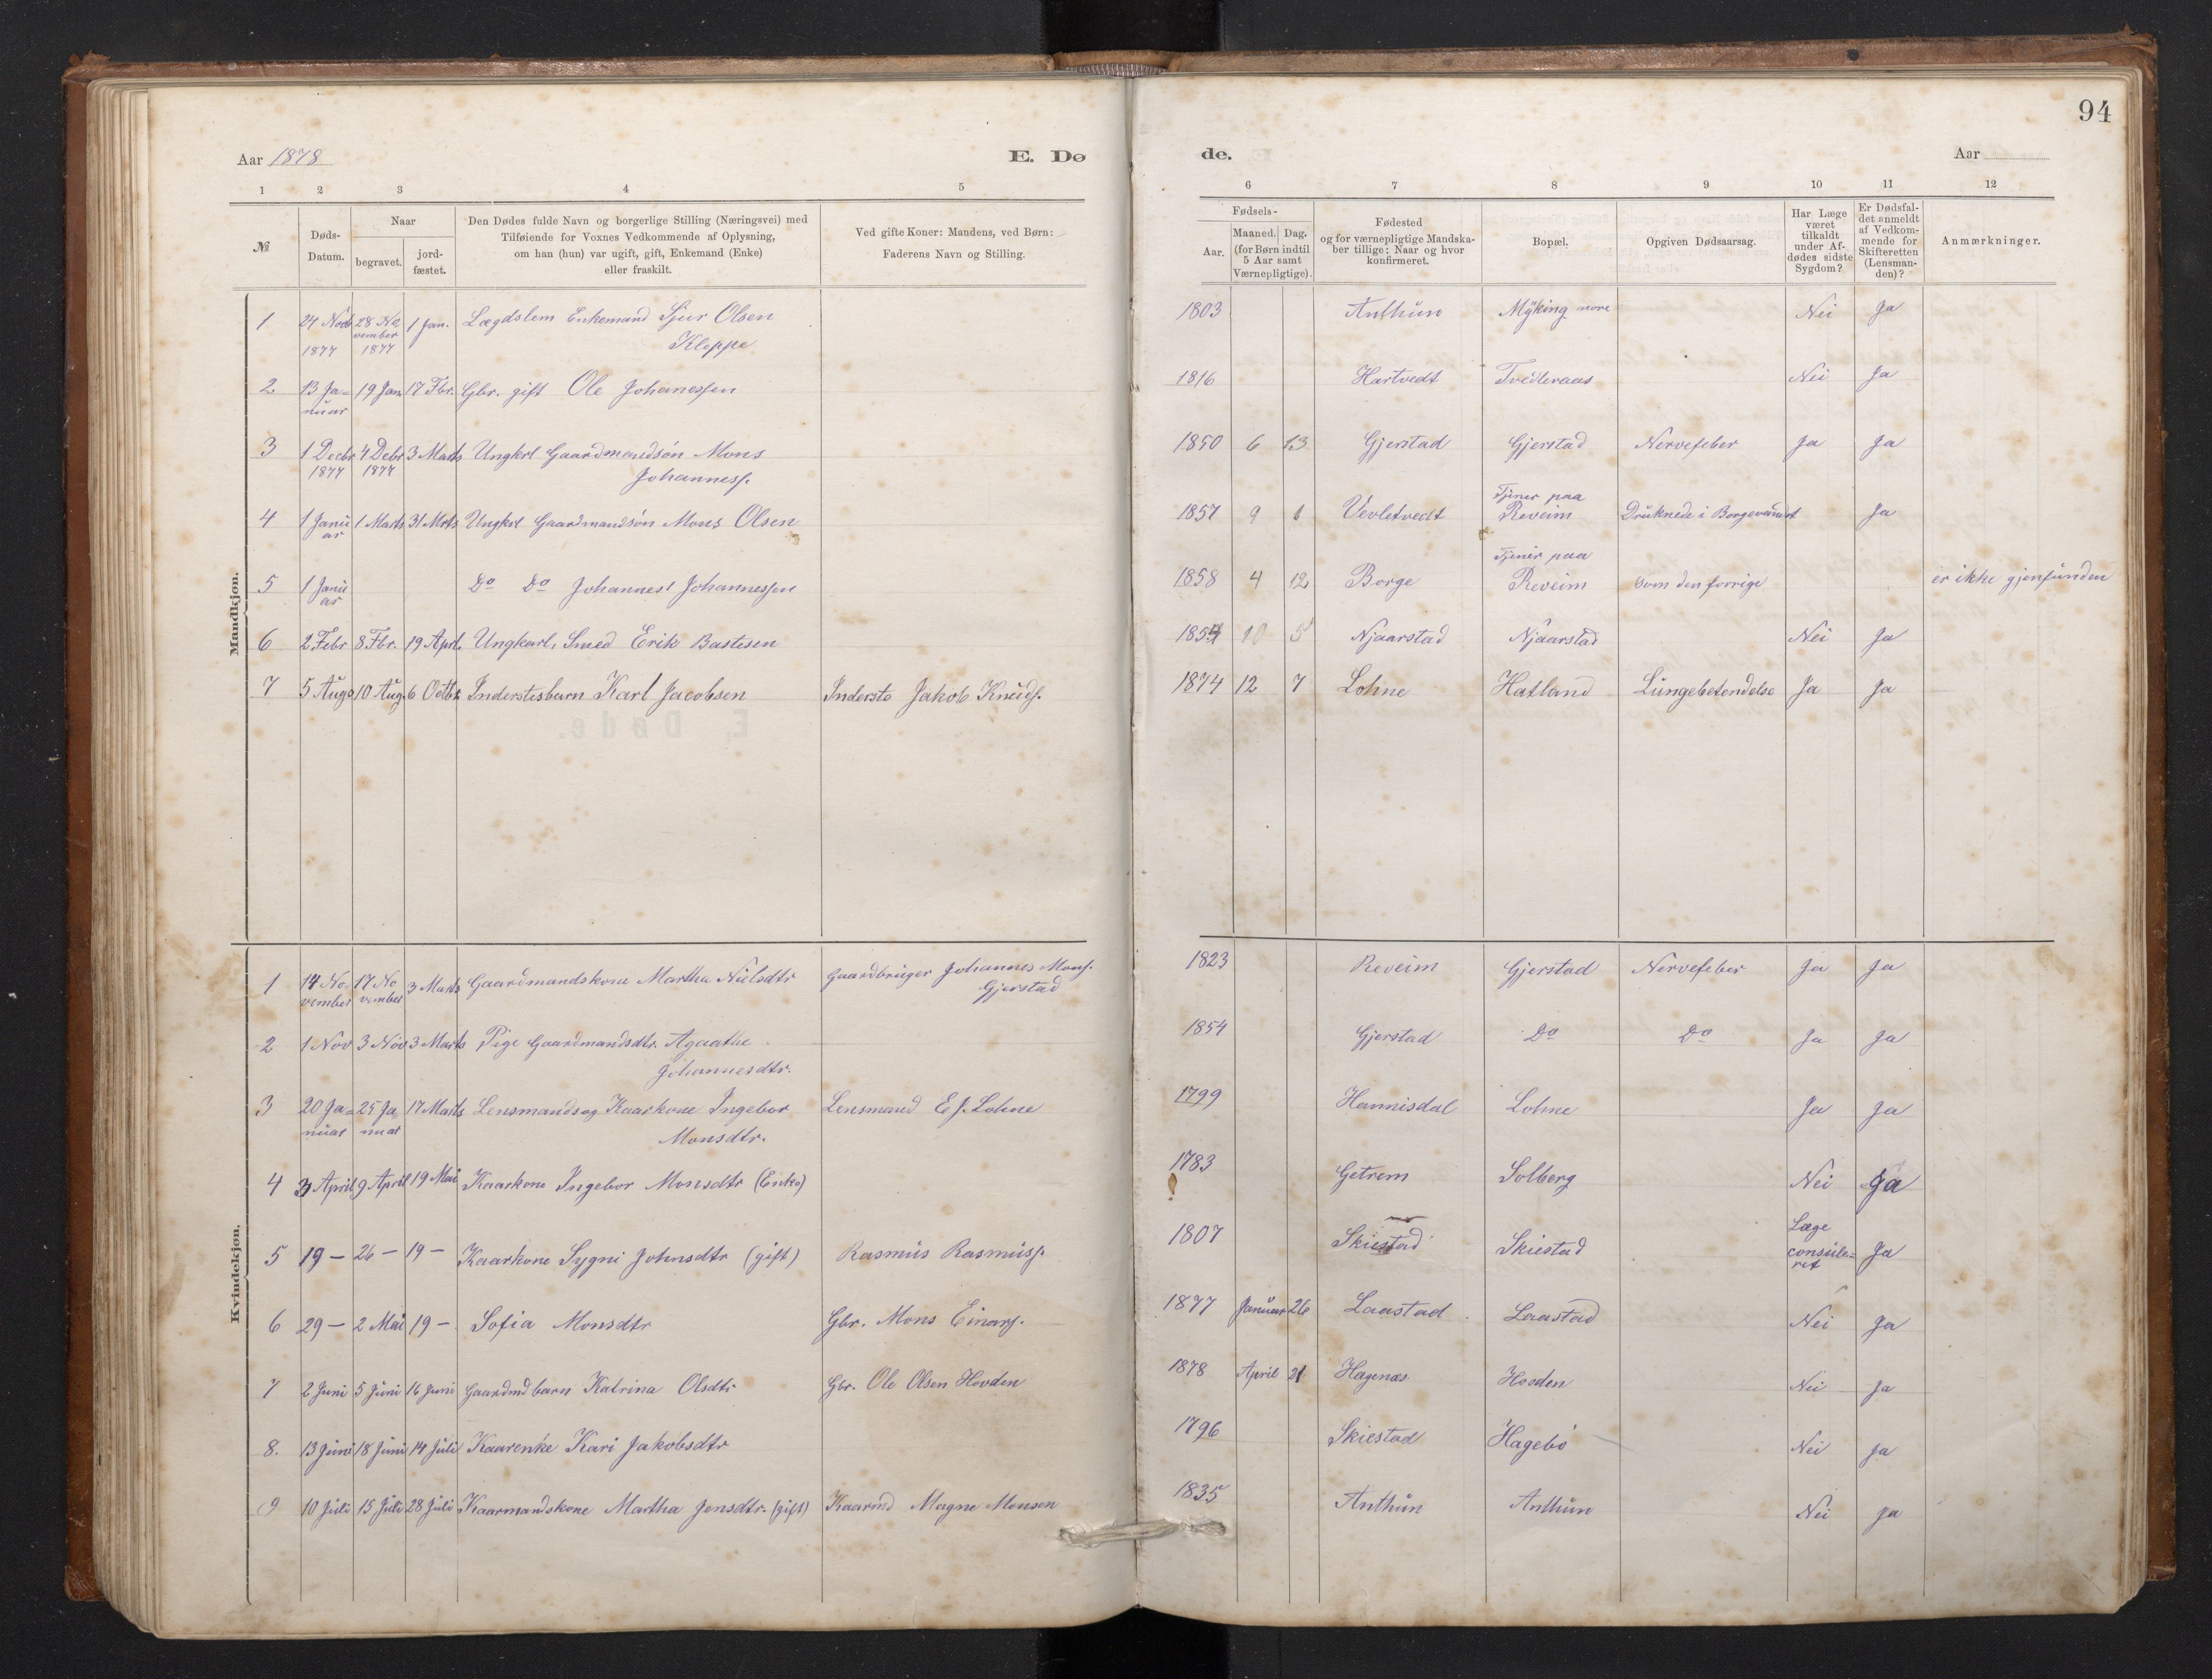 94
Aar 1878
E. Dø
de.
Aar
1 2 3 4 5
6 7 8 9 10 11 12
№
Døds-
Datum.
Naar
begravet.
jord-
fæstet.
Den Dødes fulde Navn og borgerlige Stilling (Næringsvei) med
Tilføiende for Voxnes Vedkommende af Oplysning,
om han (hun) var ugift, gift, Enkemand (Enke)
eller fraskilt.
Ved gifte Koner: Mandens, ved Børn:
Faderens Navn og Stilling.
Fødsels-
Aar.
Maaned. Dag.
(for Børn indtil
5 Aar samt
Værnepligtige).
Fødested
og for værnepligtige Mandska-
ber tillige: Naar og hvor
konfirmeret.
Bopæl.
Opgiven Dødsaarsag.
Har Læge
været
tilkaldt
under Af-
dødes sidste
Sygdom?
Er Dødsfal-
det anmeldt
af Vedkom-
mende for
Skifteretten
(Lensman-
den)?
Anmærkninger.
Mandkjøn.
1 24 Novb 28 No 1 Jan. Lægdslem Enkemand Sjur Olsen 1803 Anthun Myking nore Nei Ja
1877 vember 1877 Kloppe
2 13 Ja= 19 Jan 17 Fbr. Gbr. gift Ole Johanessen 1816 Hartvedt Tvedteraas Nei Ja
nuar
3 1 Decbr 4 Debr 3 Marts Ungkrl Gaardmandsøn Mons 1850 6 13 Gjerstad Gjerstad Nervefeber Ja Ja
1877 1877 Johanness.
Tjener paa
4 1 Janu 1 Marts 31 Mrts Ungkrl Gaardmandsøn Mons Olsen 1857 9 1 Vevletvedt Reveim Druknede i Borgevandet Ja
ar
Tjener paa
5 1 Janu Do Do Johannes Johannessen 1858 4 12 Borge Reveim som den forrige er ikke gjenfunden
ar
6 2 Febr 8 Fbr. 19 Aprl. Ungkarl, Smed Erik Bastesen 1854 10 5 Njaarstad Njaarstad Nei Ja
7 5 Aug 10 Aug 6 Octbr Inderstesbarn Karl Jacobsen Inderste Jakob Knuds. 1874 12 7 Lohne Hatland Lungebetendelse Ja Ja
Kvindekjøn.
1 14 No- 17 No 3 Marts Gaardmandskone Martha Nielsdtr Gaardbruger Johannes Mons. 1823 Reveim Gjerstad Nervefeber Ja Ja
vember vember Gjerstad
2 1 Nov 3 Nov 3 Marts Pige Gaardmandsdtr. Agaathe 1854 Gjerstad Do Do Ja Ja
Johannesdtr.
3 20 Ja= 25 Ja 17 Marts Lensmandsog Kaarkone Ingebor Lensmand E J. Lohne 1799 Hannisdal Lohne Ja Ja
nuar nuar Monsdtr.
4 3 April 9 April 19 Mai Kaarkone Ingebor Monsdtr (Enke) 1783 Getrem Solberg Nei Ja
5 19 — 26 — 19 — Kaarkone Sygni Johnsdtr (gift) Rasmus Rasmuss. 1807 Skiestad Skiestad Læge Ja
consule=
ret
6 29 — 2 Mai 19 — Sofia Monsdtr Gbr. Mons Einars. 1877 Januar 26 Laastad Laastad Nei Ja
7 2 Juni 5 Juni 16 Juni Gaardmdbarn Katrina Olsdtr Gbr. Ole Olsen Hovden 1878 April 21 Hagenæs Hovden Nei Ja
8. 13 Juni 18 Juni 14 Juli Kaarenke Kari Jakobsdtr 1796 Skiestad Hagebø Nei Ja
9 10 Juli 15 Juli 28 Juli Kaarmandskone Martha Jonsdtr. (gift) Kaarmd Magne Monsen 1835 Anthun Anthun Nei Ja